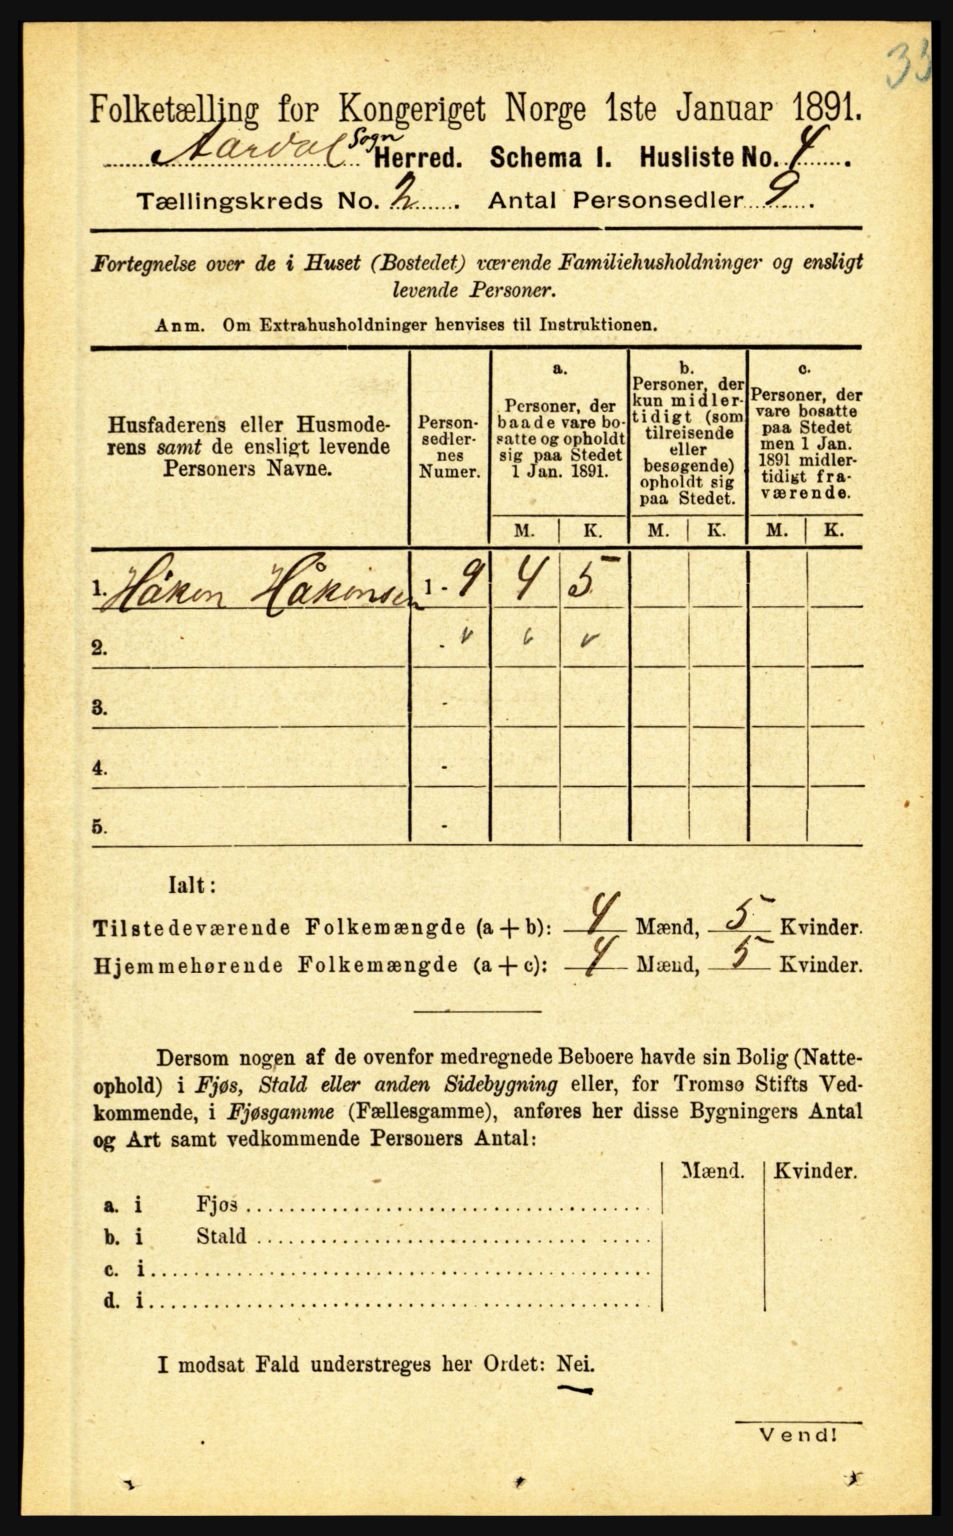 33
Folketælling for Kongeriget Norge 1ste Januar 1891.
Aardal Sogn Herred. Schema I. Husliste No. 4.
Tællingskreds No. 2. Antal Personsedler 9.
Fortegnelse over de i Huset (Bostedet) værende Familiehusholdninger og ensligt
levende Personer.
Anm. Om Extrahusholdninger henvises til Instruktionen.
Husfaderens eller Husmode-
rens samt de ensligt levende
Personers Navne.
Person-
sedler-
nes
Numer.
a.
Personer, der
baade vare bo-
satte og opholdt
sig paa Stedet
1 Jan. 1891.
b.
Personer, der
kun midler-
tidigt (som
tilreisende
eller
besøgende)
opholdt sig
paa Stedet.
c.
Personer, der
vare bosatte
paa Stedet
men 1 Jan.
1891 midler-
tidigt fra-
værende.
M. K. M. K. M. K.
1. Håkon Håkonsen 1 - 9 4 5
2. - " " "
3. -
4. -
5. -
Ialt:
Tilstedeværende Folkemængde (a + b): 4 Mænd, 5 Kvinder.
Hjemmehørende Folkemængde (a + c): 4 Mænd, 5 Kvinder.
Dersom nogen af de ovenfor medregnede Beboere havde sin Bolig (Natte-
ophold) i Fjøs, Stald eller anden Sidebygning eller, for Tromsø Stifts Ved-
kommende, i Fjøsgamme (Fællesgamme), anføres her disse Bygningers Antal
og Art samt vedkommende Personers Antal:
Mænd. Kvinder.
a. i Fjøs
b. i Stald
c. i
d. i
I modsat Fald understreges her Ordet: Nei.
Vend!